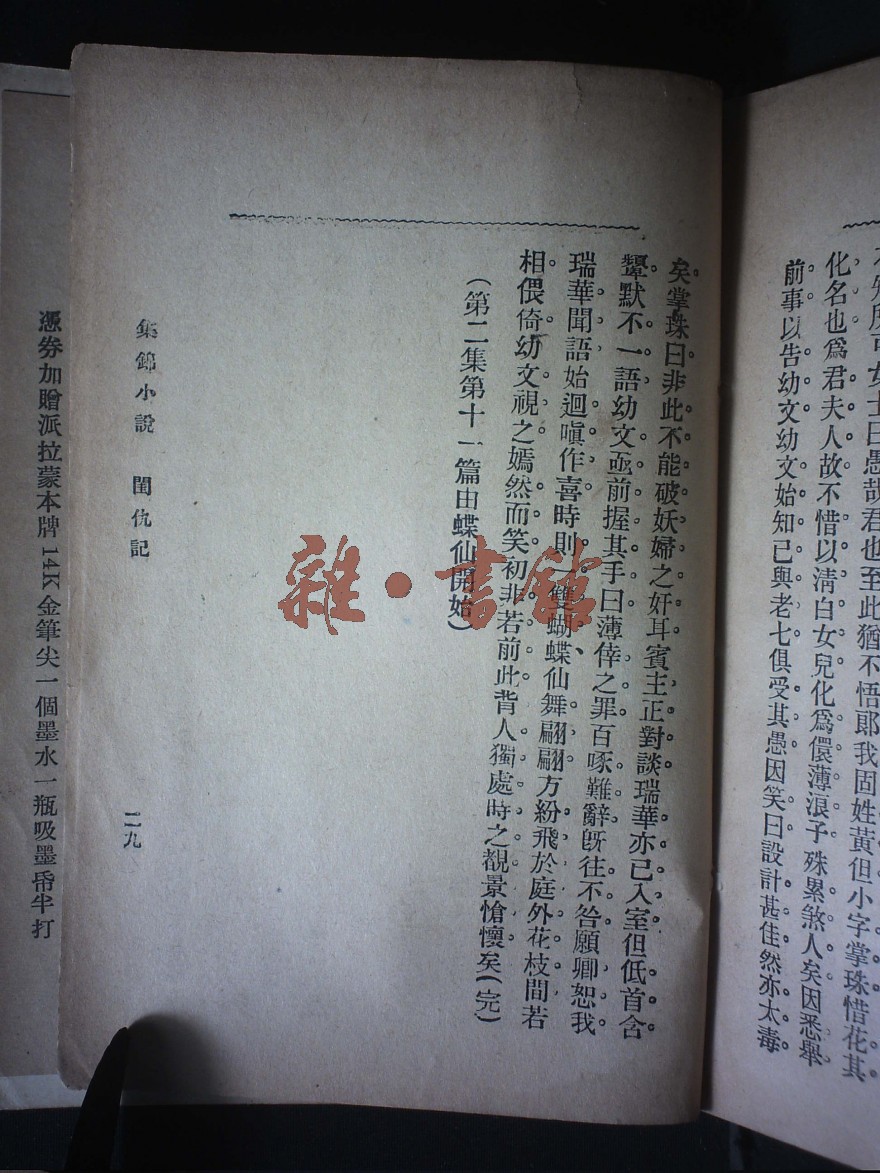 化名也爲君夫人故不惜以淸白女兒化爲儇薄浪子殊累煞人矣因悉舉
前事以告幼文幼文始知已與老七俱受其愚因笑曰設計甚佳然亦太毒
矣掌珠曰非此不能破妖婦之奸耳賓主正對談瑞華亦已入室但低首含
顰默不一語幼文亟前握其手曰薄倖之罪百啄難辭旣往不咎願卿恕我
瑞華聞語始迴嗔作喜時則雙蝴蝶仙舞翩翩方紛飛於庭外花枝間若
相偎倚幼文視之嫣然而笑初非若前此背人獨處時之覩景愴懷矣(完)
(第二集第十一篇由蝶仙開始)
集錦小說 閨仇記
二九
憑劵加贈派拉蒙本牌14K金筆尖一個墨水一瓶吸墨帋半打
雜·書館